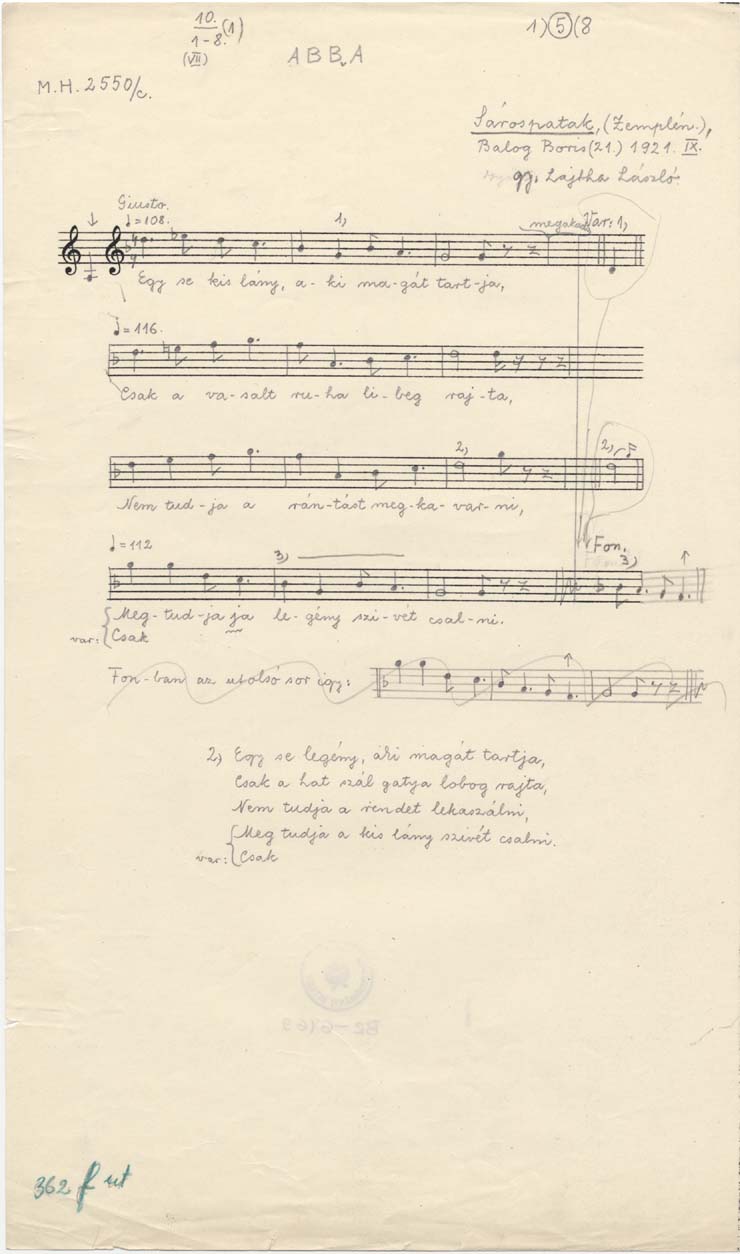 10. (1)
1-8.
(VII)
1) 5 (8
A B Bv A
M.H. 2550/c.
Sárospatak, (Zemplén.),
Balog Boris (21.) 1921. IX.
gy. Lajtha László.
Giusto.
♩= 108.
1,)
Var: 1,)
Egy se kis lány, a-ki ma-gát tart-ja,
♩= 116.
Csak a va-salt ru-ha li-beg raj-ta,
2,)
2,)
Nem tud-ja a rán-tást meg-ka-var-ni,
♩= 112
3,)
Fon.
3)
Meg-tud-ja ja le-gény szi-vét csal-ni.
var: Csak
Fon-ban az utolsó sor így:
2,) Egy se legény, áki magát tartja,
Csak a hat szál gatya lobog rajta,
Nem tudja a rendet lekaszálni,
Meg tudja a kis lány szivét csalni.
var: Csak
362 f ut